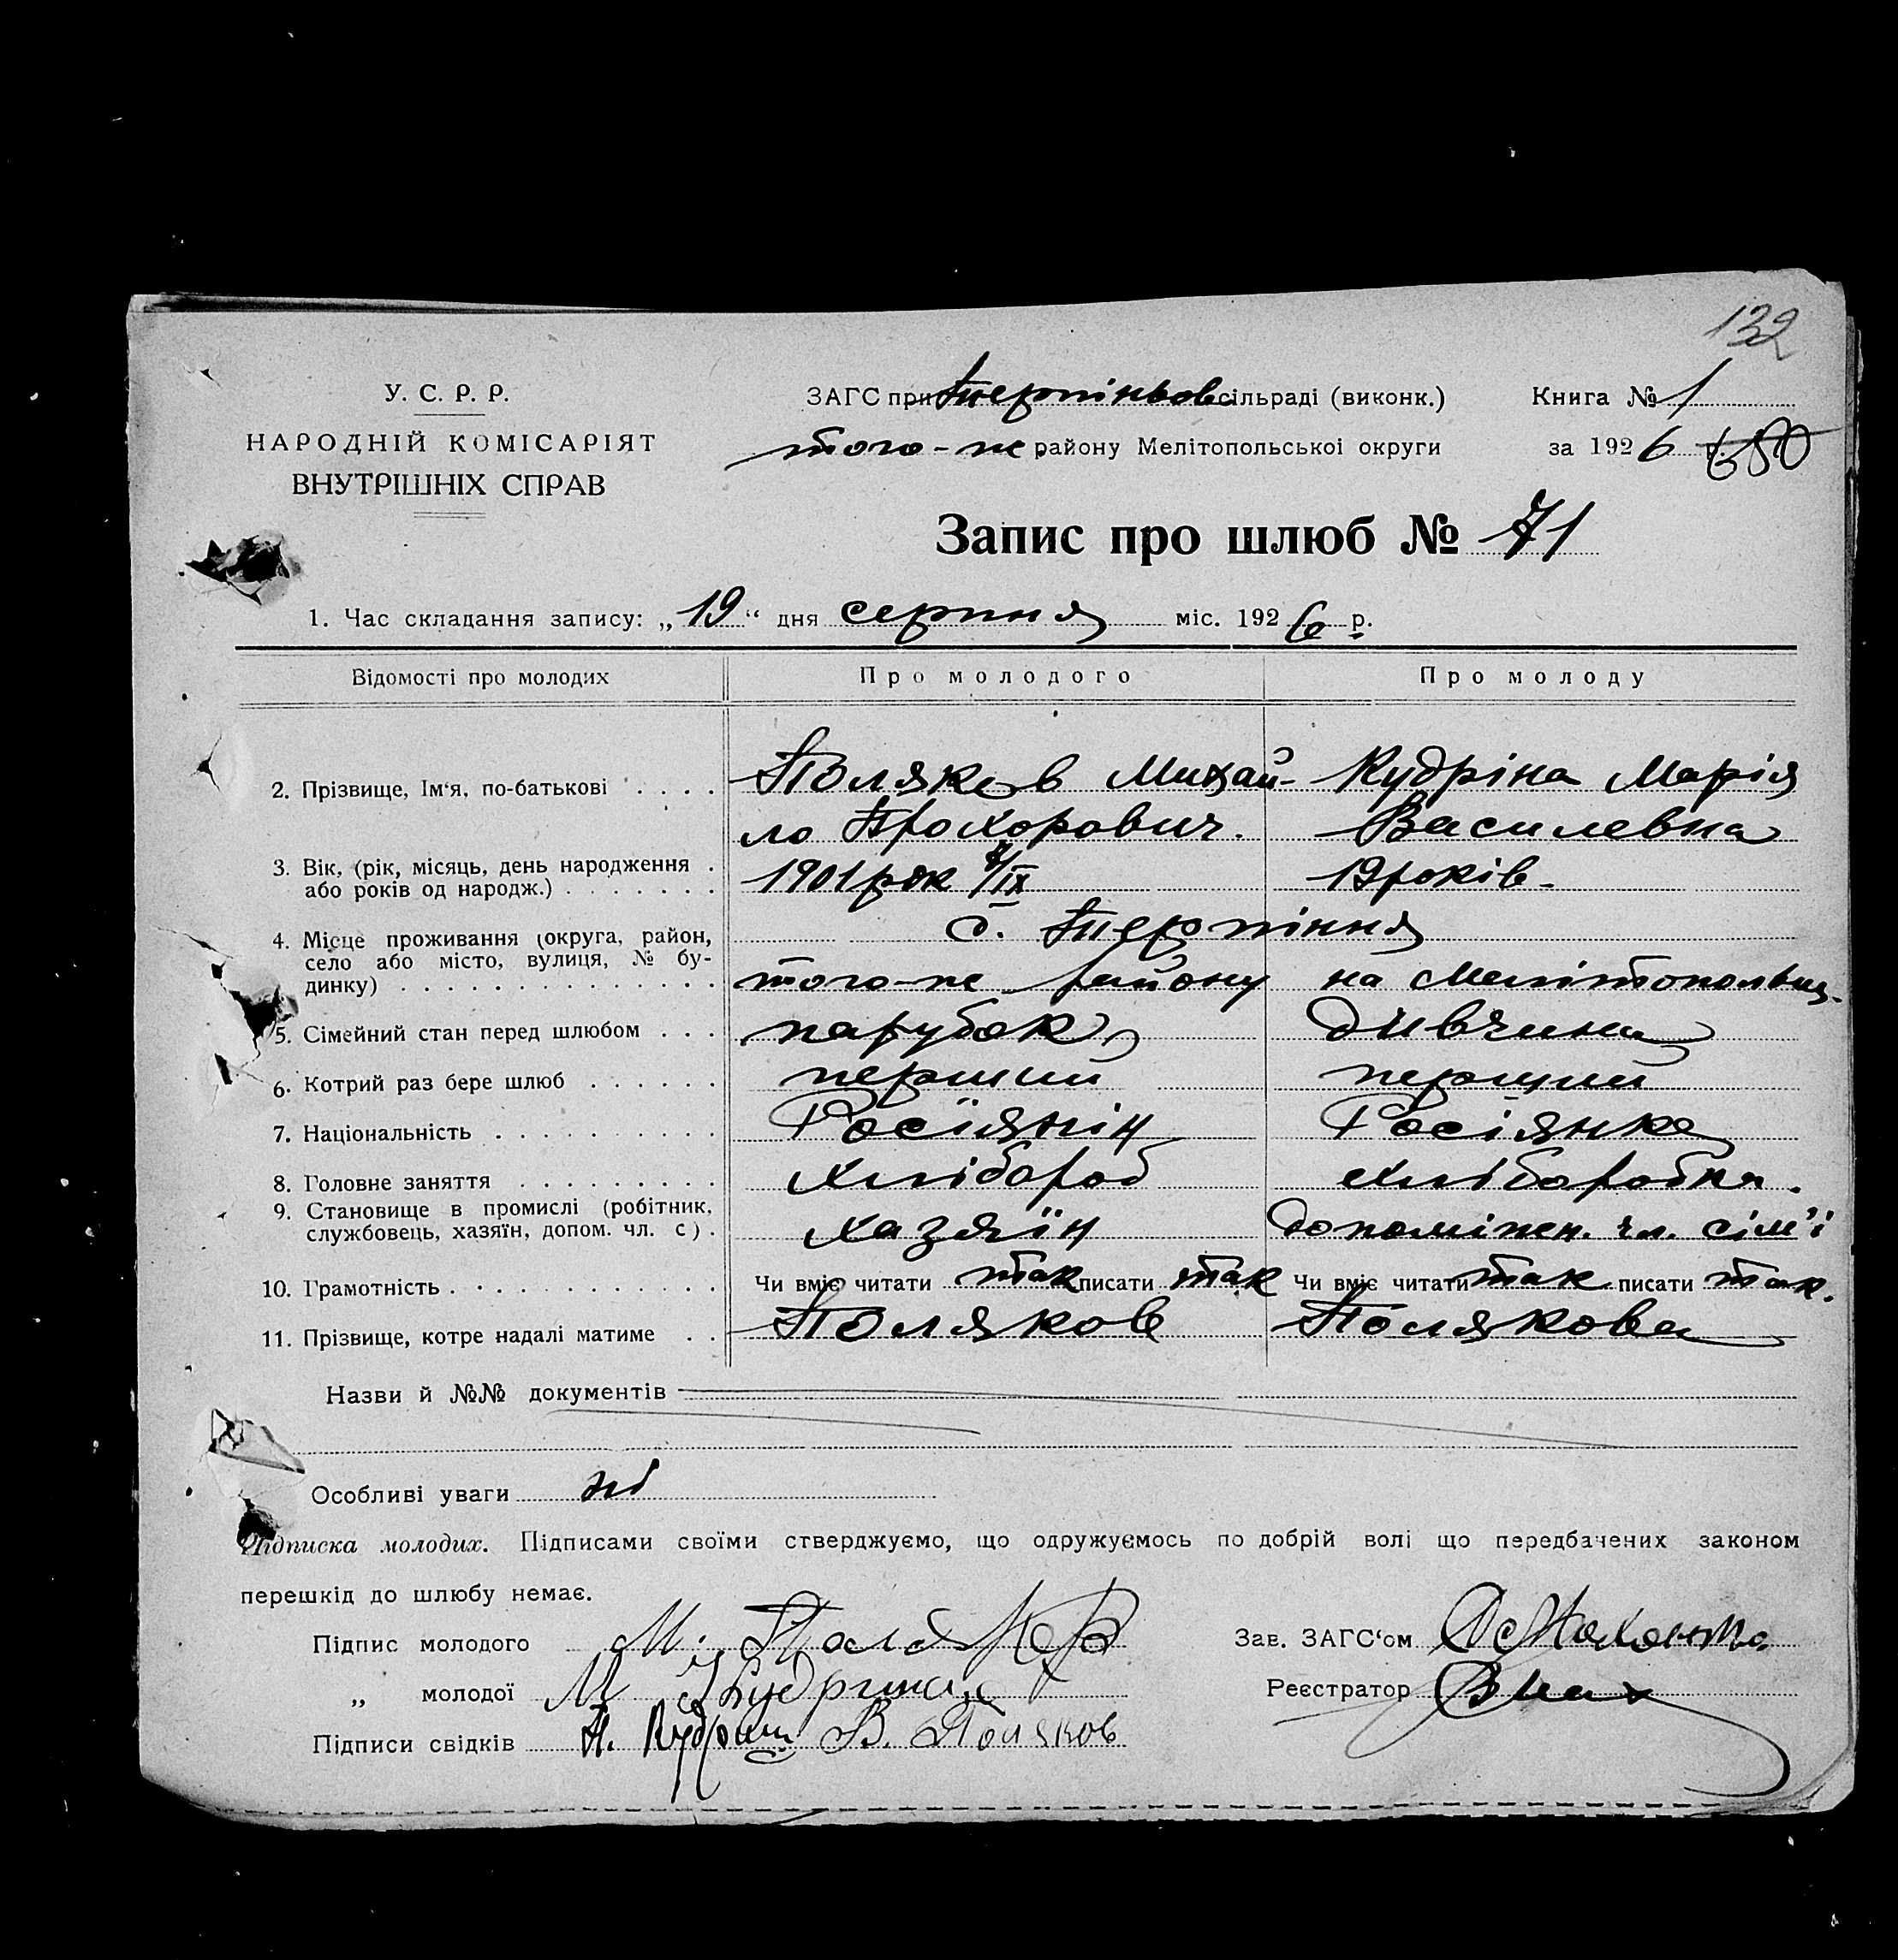 132
У. С. Р. Р.
НАРОДНІЙ КОМІСАРІЯТ
ВНУТРІШНІХ СПРАВ
ЗАГС при Терпіньов сільраді (виконк.)
того-же району Мелітопольської округи
Книга № 1
за 1926 р.
Запис про шлюб № 71
1. Час складання запису: „19“ дня серпня міс. 1926 р.
Відомості про молодих Про молодого Про молоду
2. Прізвище, Ім‘я, по-батькові . . . . Поляков Михай- Кудріна Марія
ло Прохорович. Василевна
3. Вік, (рік, місяць, день народження . 1901 рок /IX 19 років.
або років од народж.) . . . . . . .
4. Місце проживання (округа, район, с. Терпіння
село або місто, вулиця, № бу-
динку) . . . . . . . . . . . . . . того-же району на Мелітопольщ.
5. Сімейний стан перед шлюбом . . . парубок дивчина
6. Котрий раз бере шлюб . . . . . . перший перший
7. Національність . . . . . . . . . Росіянін Росіянка
8. Головне заняття . . . . . . . . . хлібороб хліборобка.
9. Становище в промислі (робітник,
службовець, хазяїн, допом. чл. с) . хазяїн допоміжн. чл. сім'ї
10. Грамотність . . . . . . . . . . . Чи вміє читати так писати так Чи вміє читати так писати так.
11. Прізвище, котре надалі матиме . . Поляков Полякова
Назви й №№ документів
Особливі уваги ні
Підписка молодих. Підписами своїми стверджуємо, що одружуємось по добрій волі що передбачених законом
перешкід до шлюбу немає.
Підпис молодого М. Поляков
Зав. ЗАГС‘ом
„ молодої М Кудрина
Реєстратор
Підписи свідків В. Поляков